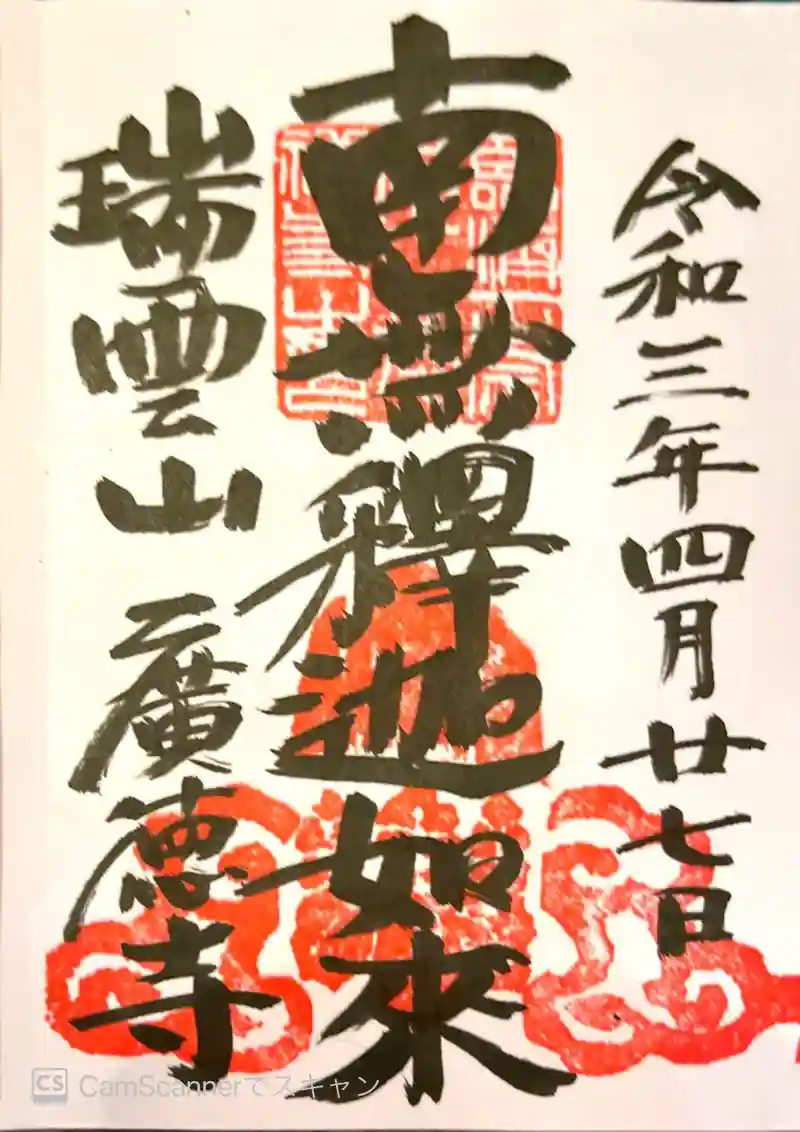 令和三年四月廿七日
南無釋迦如來
瑞雲山 廣徳寺
CS CamScannerでスキャン